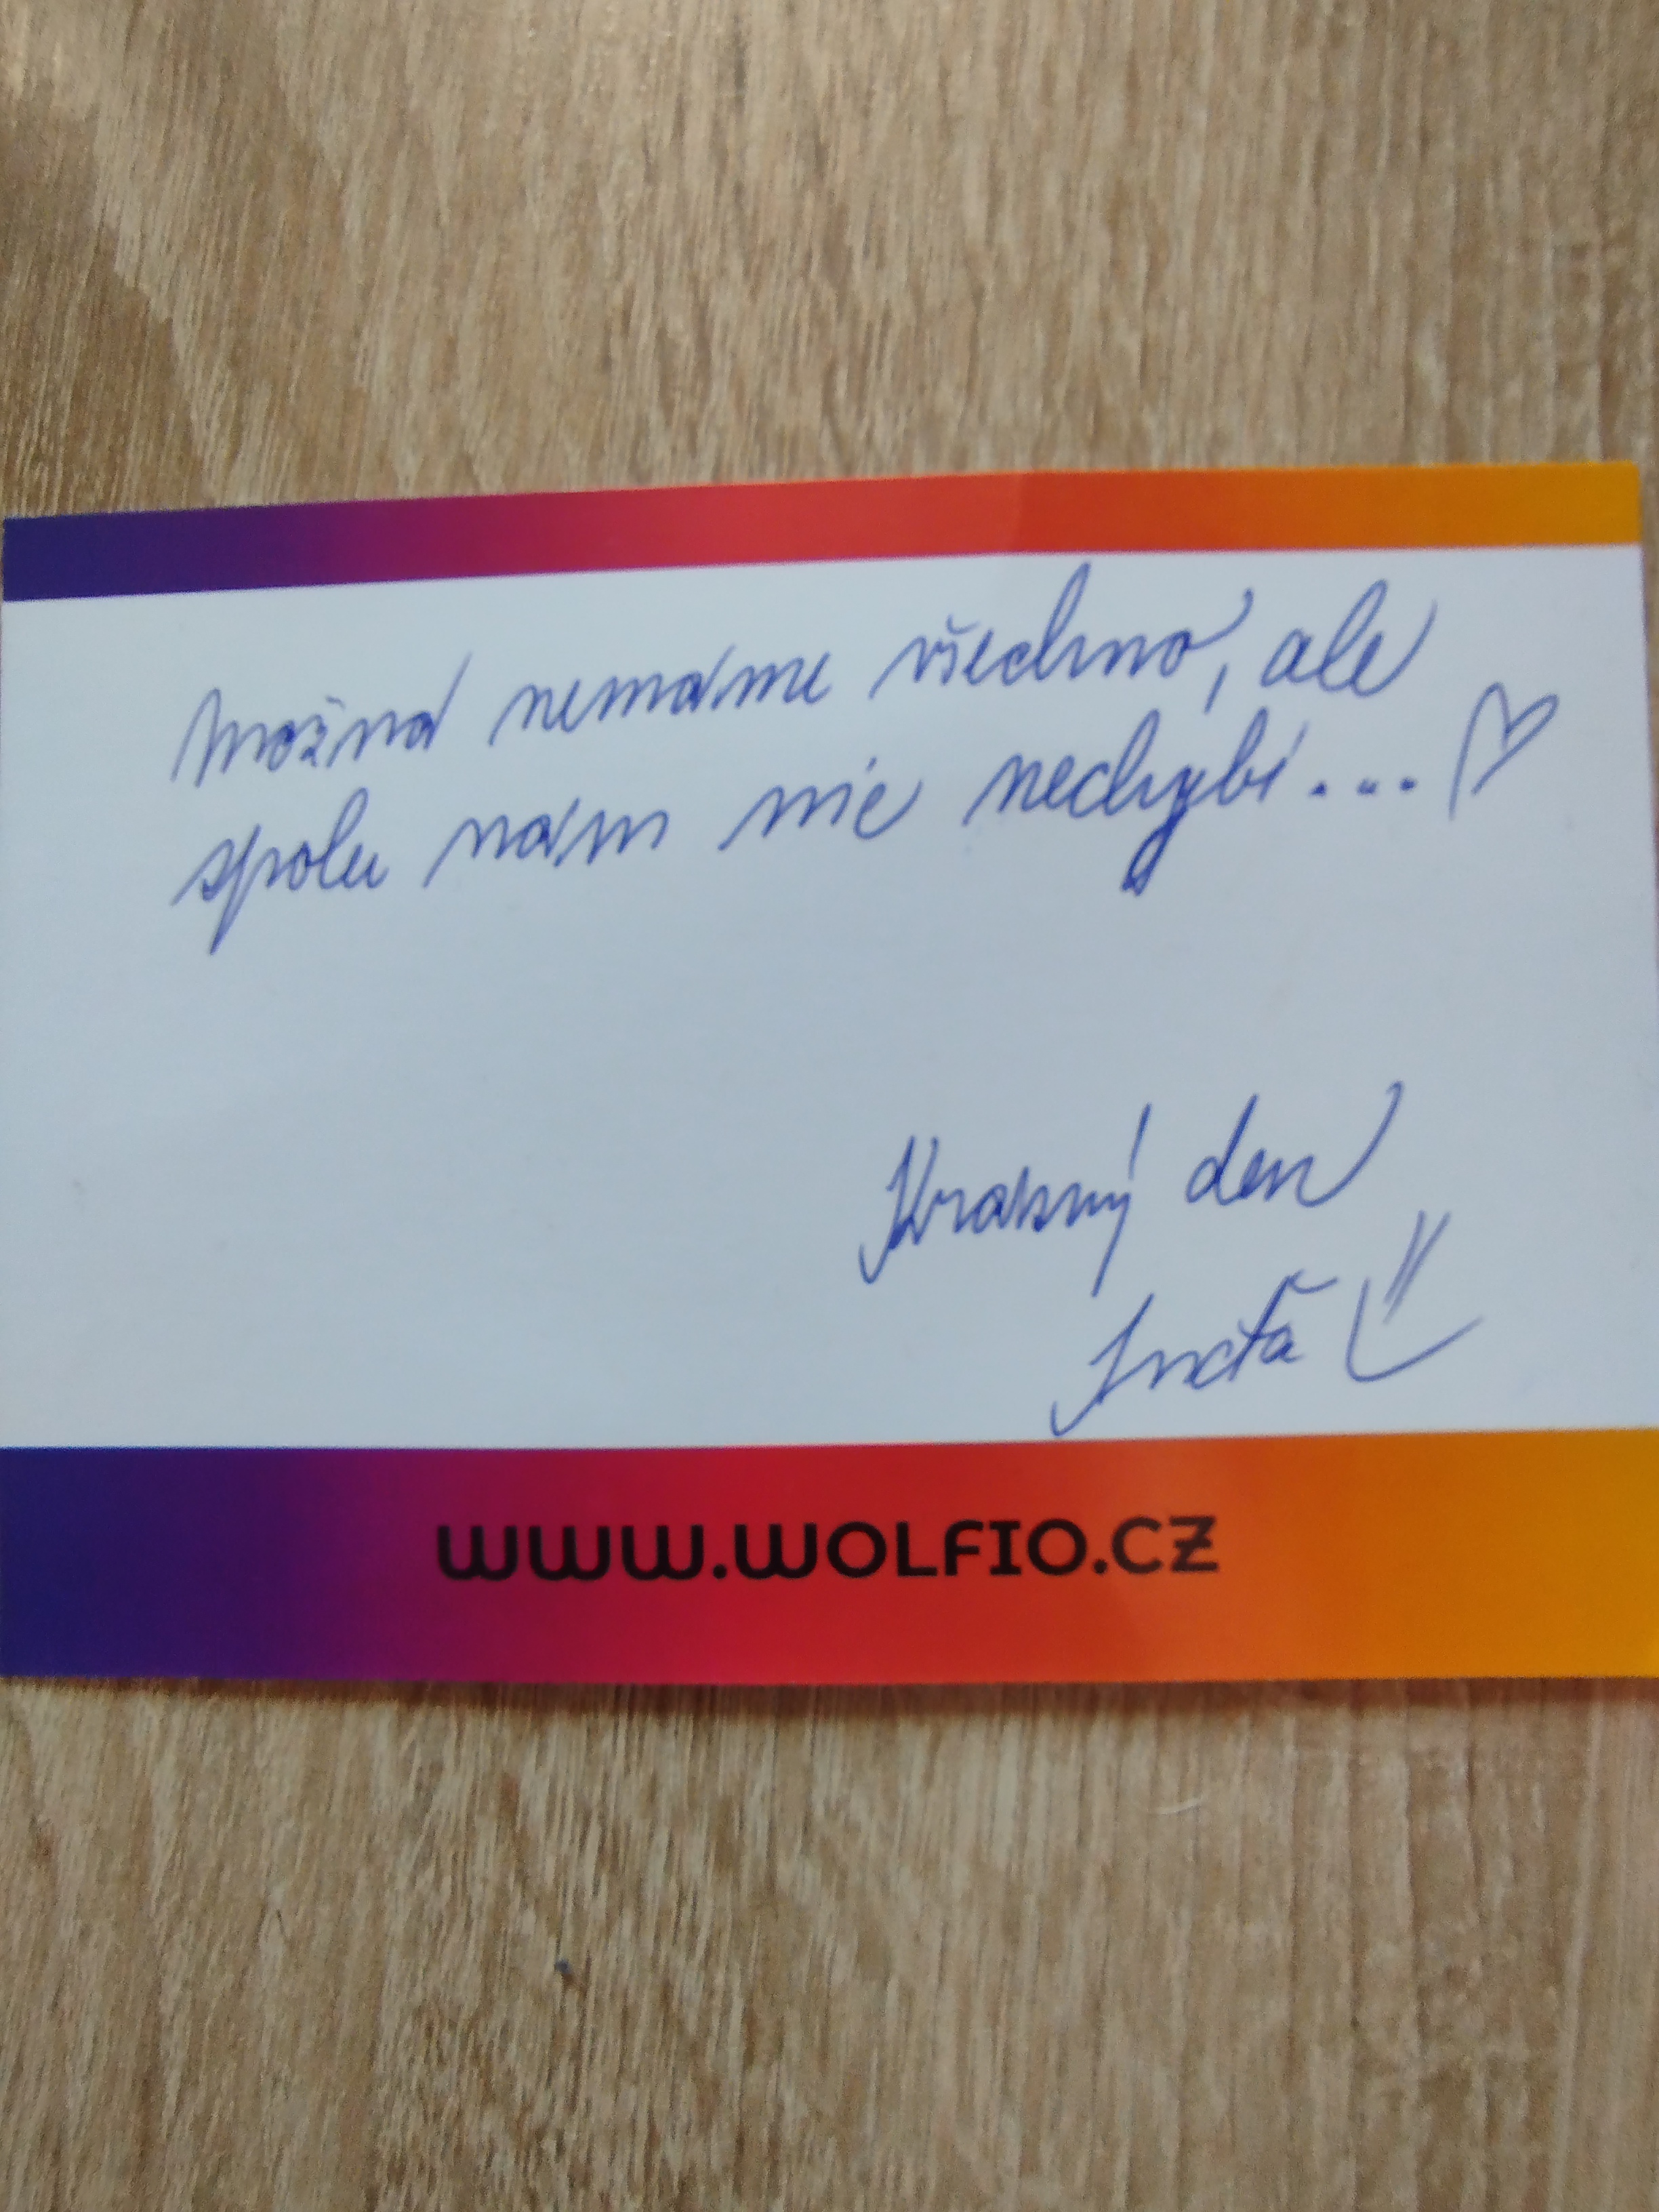 Možná nemáme všechno, ale
spolu nám nic nechybí... ♡
Krásný den
WWW.WOLFIO.CZ